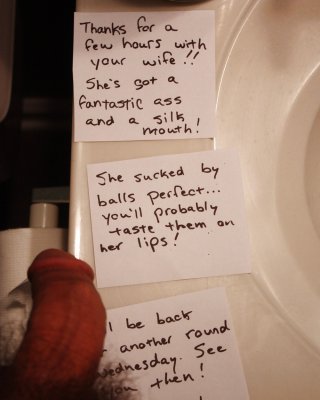 Thanks for a
few hours with
your wife!!
She's got a
fantastic ass
and a silk
mouth!
She sucked by
balls perfect...
you'll probably
taste them on
her lips!
I be back
another round
Wednesday. See
then!